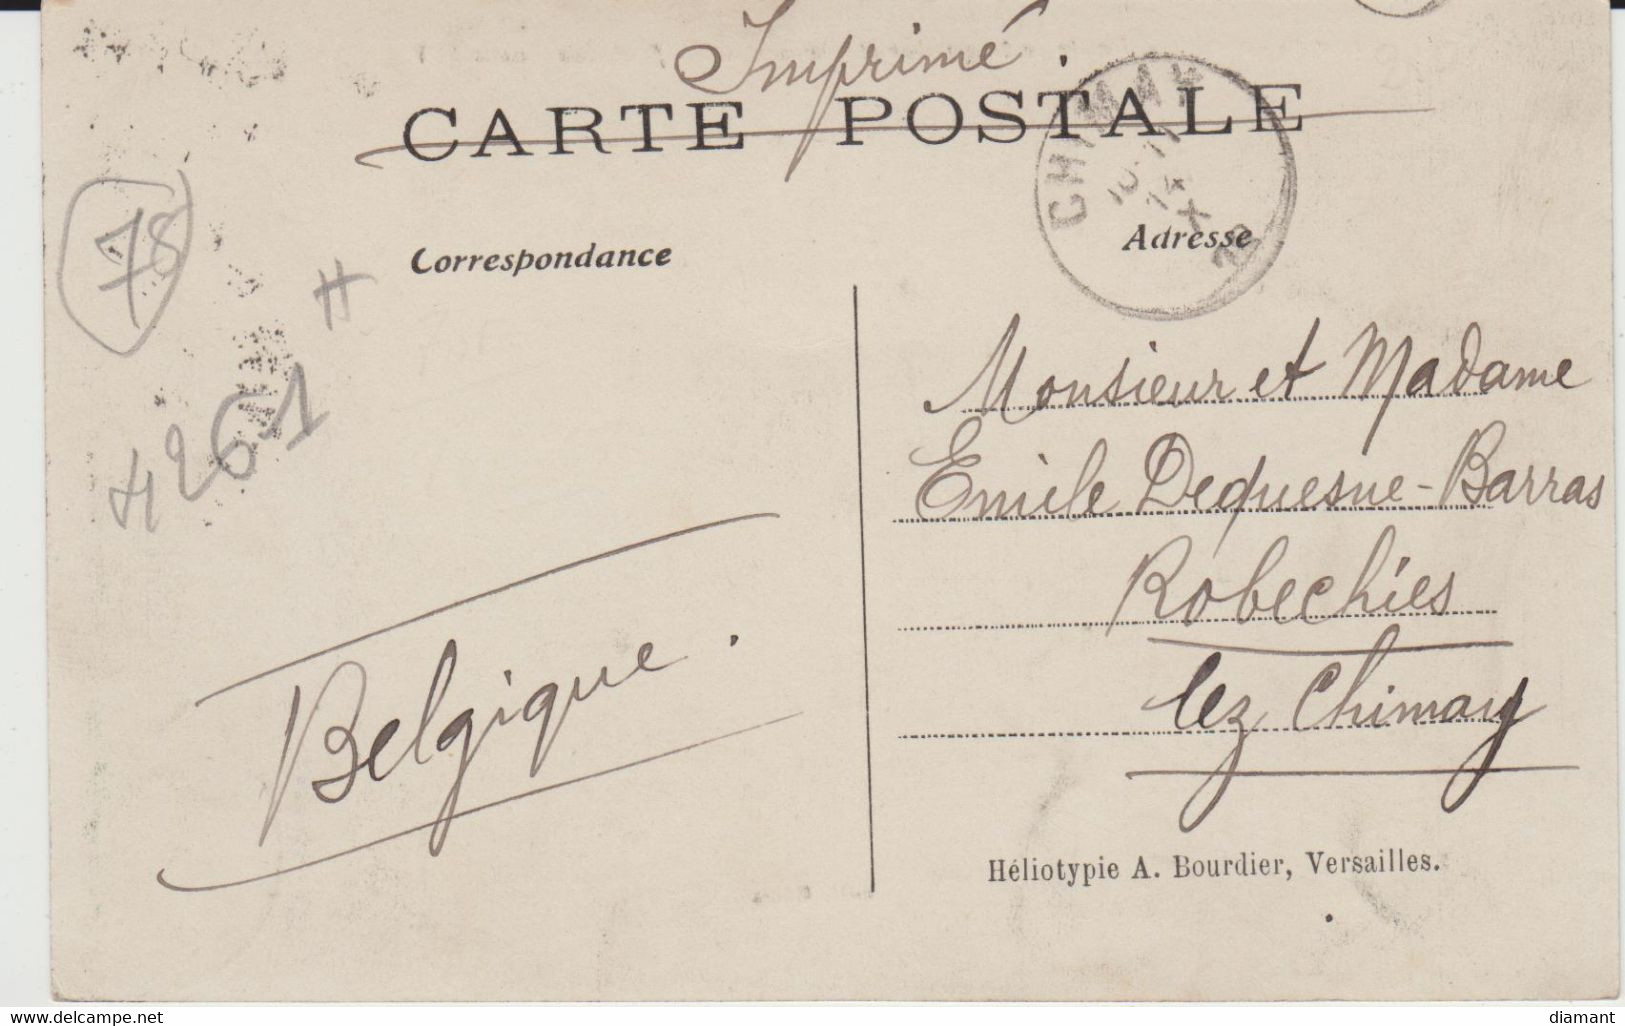 Imprimé.
CARTE POSTALE
CHIMAY
Correspondance
Adresse
78
4261
Monsieur et Madame
Emile Dequesne-Barras
Robechies
lez Chimay
Belgique.
Héliotypie A. Bourdier, Versailles.
www.delcampe.net
diamant